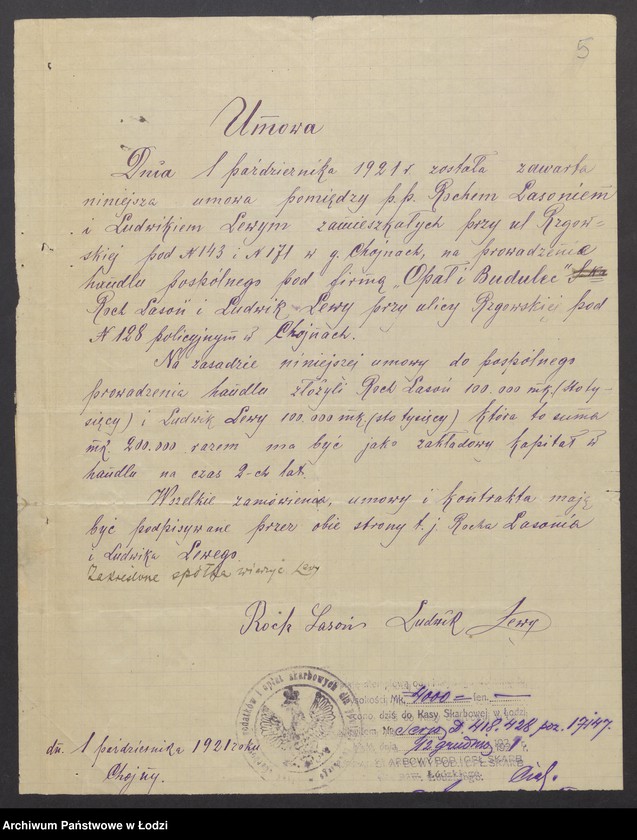 5
Umowa
Dnia 1 października 1921 r została zawarta
niniejsza umowa pomiędzy p.p. Rochem Lasoniem
i Ludwikiem Lewym zamieszkałych przy ul Rzgow-
skiej pod N 143 i N 171 w g. Chojnach, na prowadzenie
handlu pospólnego pod firmą „Opał i Budulec"
Roch Lasoń i Ludwik Lewy przy ulicy Rzgowskiej pod
N 128 policyjnym w Chojnach.
Na zasadzie niniejszej umowy do pospólnego
prowadzenia handlu złożyli Roch Lasoń 100.000 mk. (sto ty-
sięcy) i Ludwik Lewy 100.000 mk (sto tysięcy) która to suma
mk. 200.000 razem ma być jako zakładowy kapitał w
handlu na czas 2-ch lat.
Wszelkie zamówienia, umowy i kontrakta mają
być podpisywane przez obie strony t. j. Rocha Lasonia
i Ludwika Lewego.
Zakreślone spółka wierzyć Lewy
Roch Lasoń Ludwik Lewy
podatków i opłat skarbowych
wysokości Mk. 4000 = fen. —
dziś do Kasy Skarbowej w Łodzi
Serja D. 418.428 poz. 17147.
dnia 12 grudnia 1921 r.
dn. 1 października 1921 roku
Chojny.
Archiwum Państwowe w Łodzi